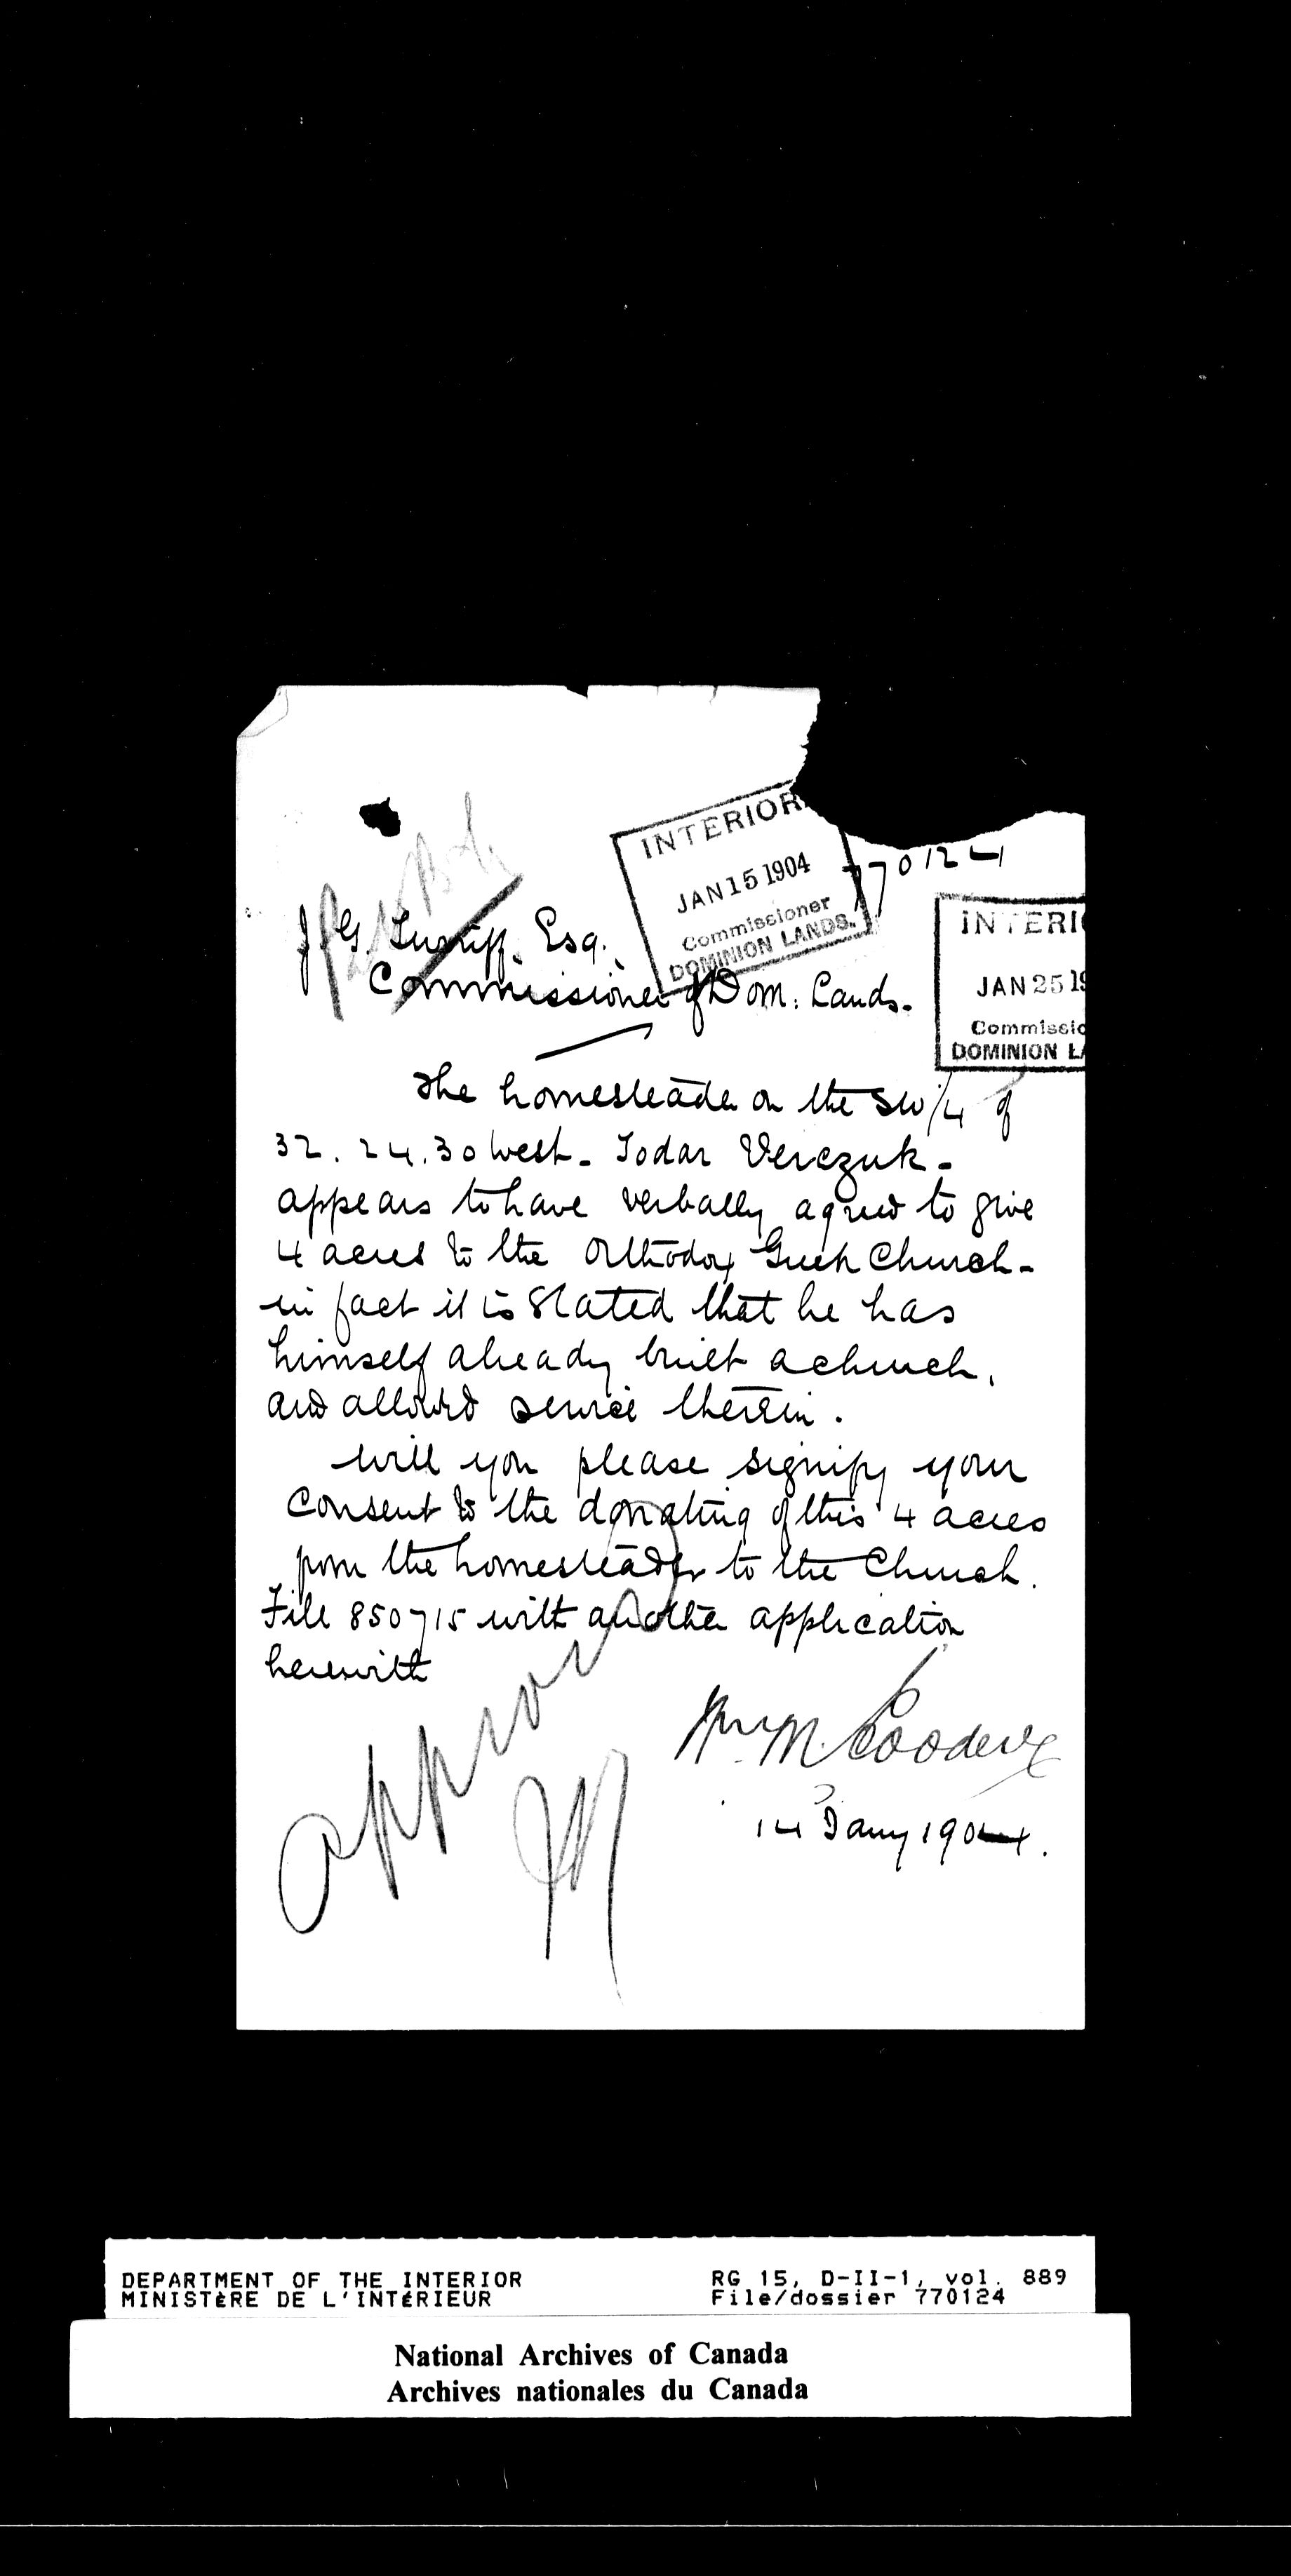 INTERIOR
JAN 15 1904
Commissioner
DOMINION LANDS.
770124
INTERI
JAN 25 19
Commissio
DOMINION LA
J G Turriff. Esq.
Commissioner of Dom: Lands.
The homesteader on the SW/4 of
32. 24. 30 West - Todar Verczuk -
appears to have verbally agreed to give
4 acres to the Orthodox Greek Church -
in fact it is stated that he has
himself already built a church,
and allowed service therein.
Will you please signify your
consent to the donating of this 4 acres
from the homesteader to the Church.
File 850715 with another application
herewith
Approved
14 Jany 1904.
DEPARTMENT OF THE INTERIOR
MINISTÈRE DE L'INTÉRIEUR
RG 15, D-II-1, vol. 889
File/dossier 770124
National Archives of Canada
Archives nationales du Canada